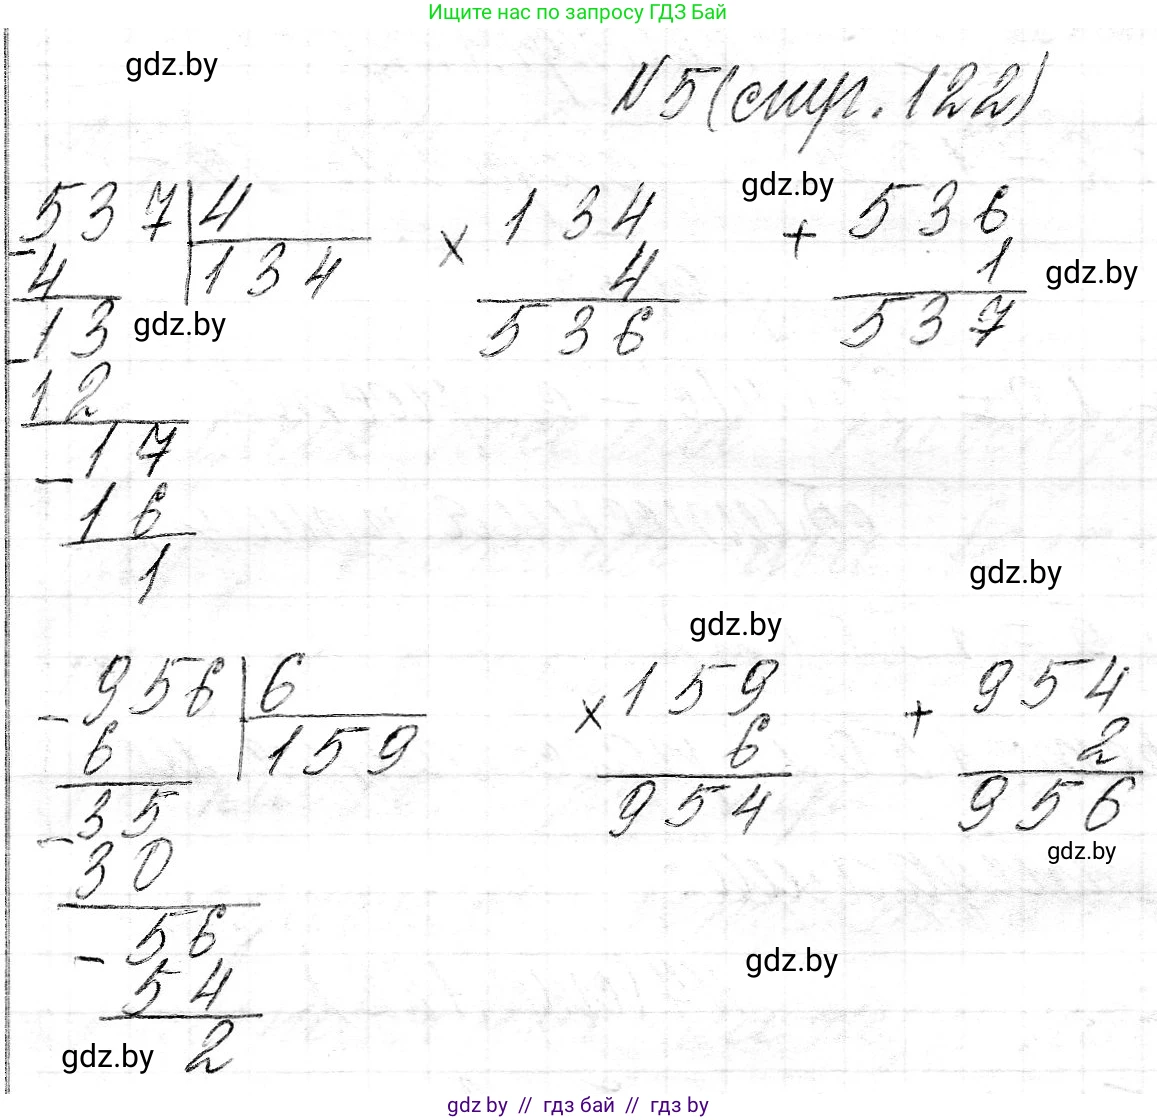 Ищите нас по запросу ГДЗ Бай
gdz.by
№5(стр.122)
537 4
- 4 134
13
- 12
17
- 16
1
× 134
4
536
gdz.by
+ 536
1
537
gdz.by
gdz.by
gdz.by
gdz.by
- 956 6
6 159
35
- 30
56
- 54
2
× 159
6
954
+ 954
2
956
gdz.by
gdz.by
gdz.by
gdz.by // гдз бай // гдз by